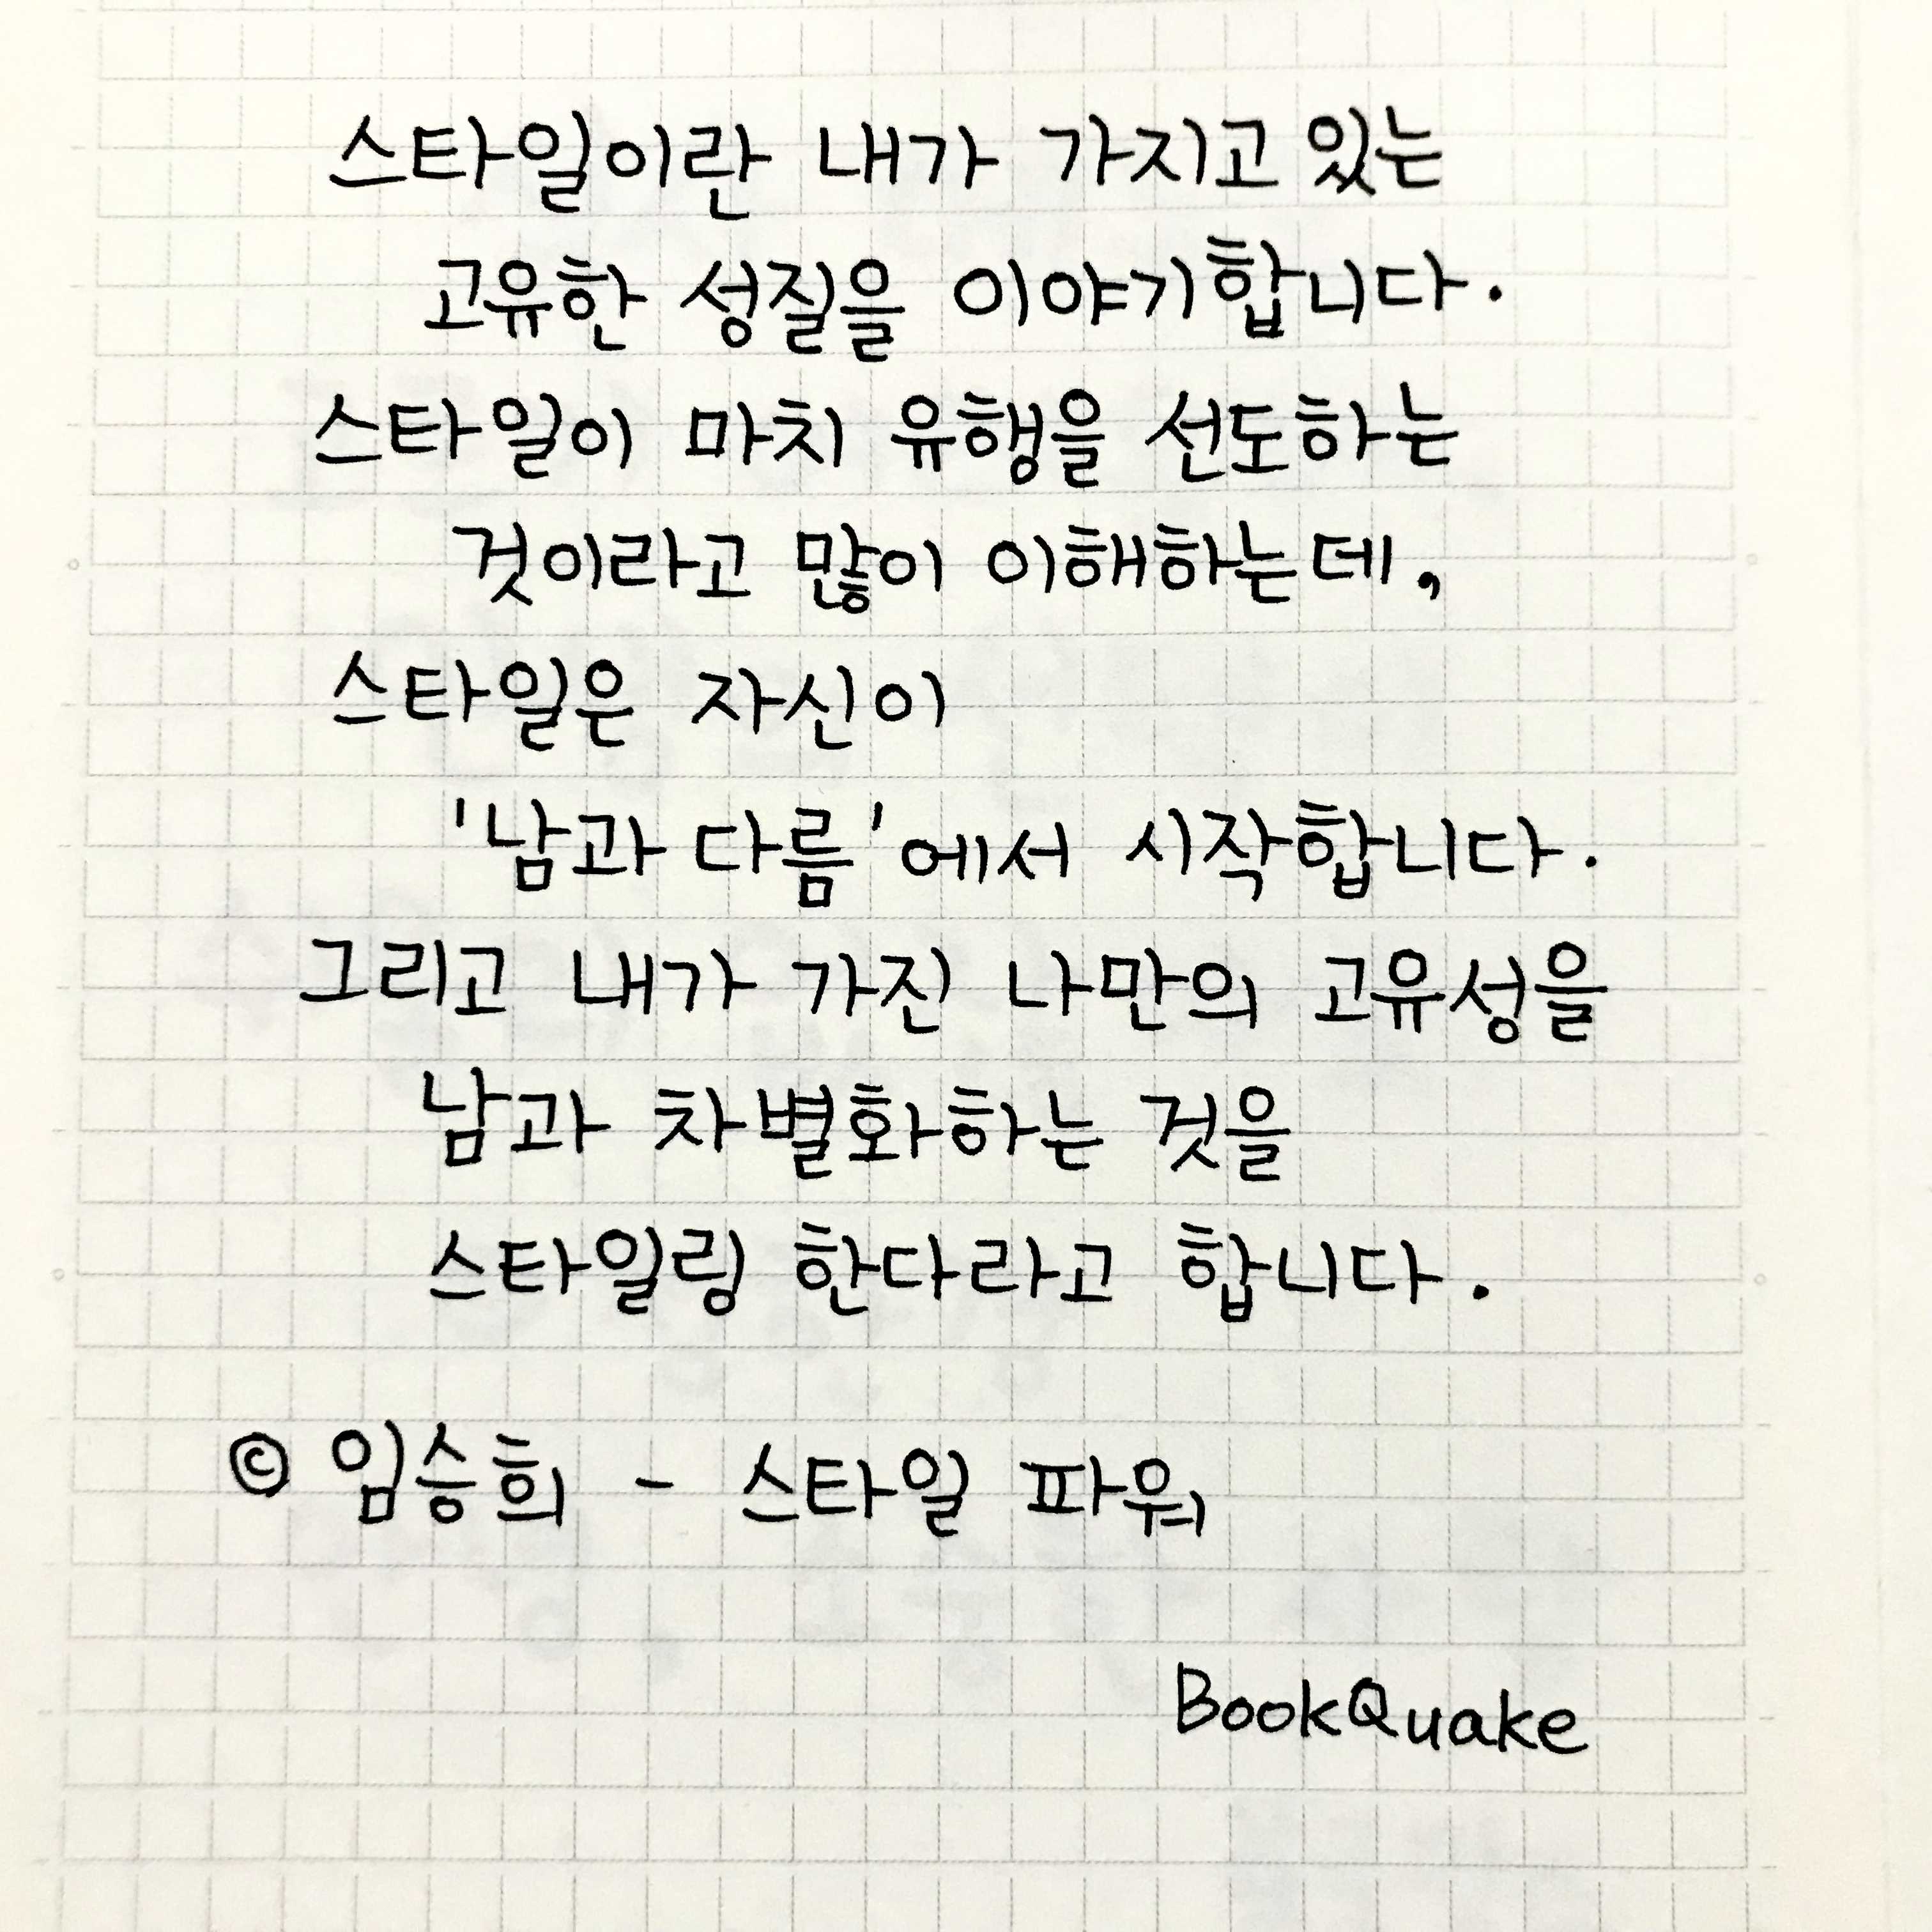 스타일이란 내가 가지고 있는
고유한 성질을 이야기합니다.
스타일이 마치 유행을 선도하는
것이라고 많이 이해하는데,
스타일은 자신이
'남과 다름'에서 시작합니다.
그리고 내가 가진 나만의 고유성을
남과 차별화하는 것을
스타일링 한다라고 합니다.
© 임승희 - 스타일 파워
BookQuake